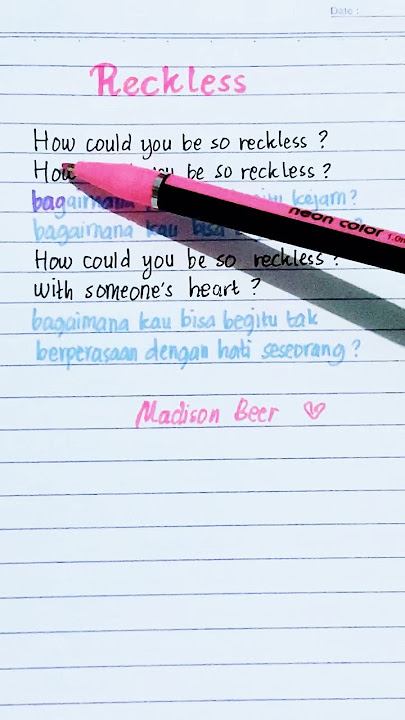 Date :
Reckless
How could you be so reckless ?
How you be so reckless ?
bagaimana begitu kejam?
bagaimana kau bisa ?
How could you be so reckless ?
with someone's heart ?
bagaimana kau bisa begitu tak
berperasaan dengan hati seseorang ?
Madison Beer
neon color 1.0m